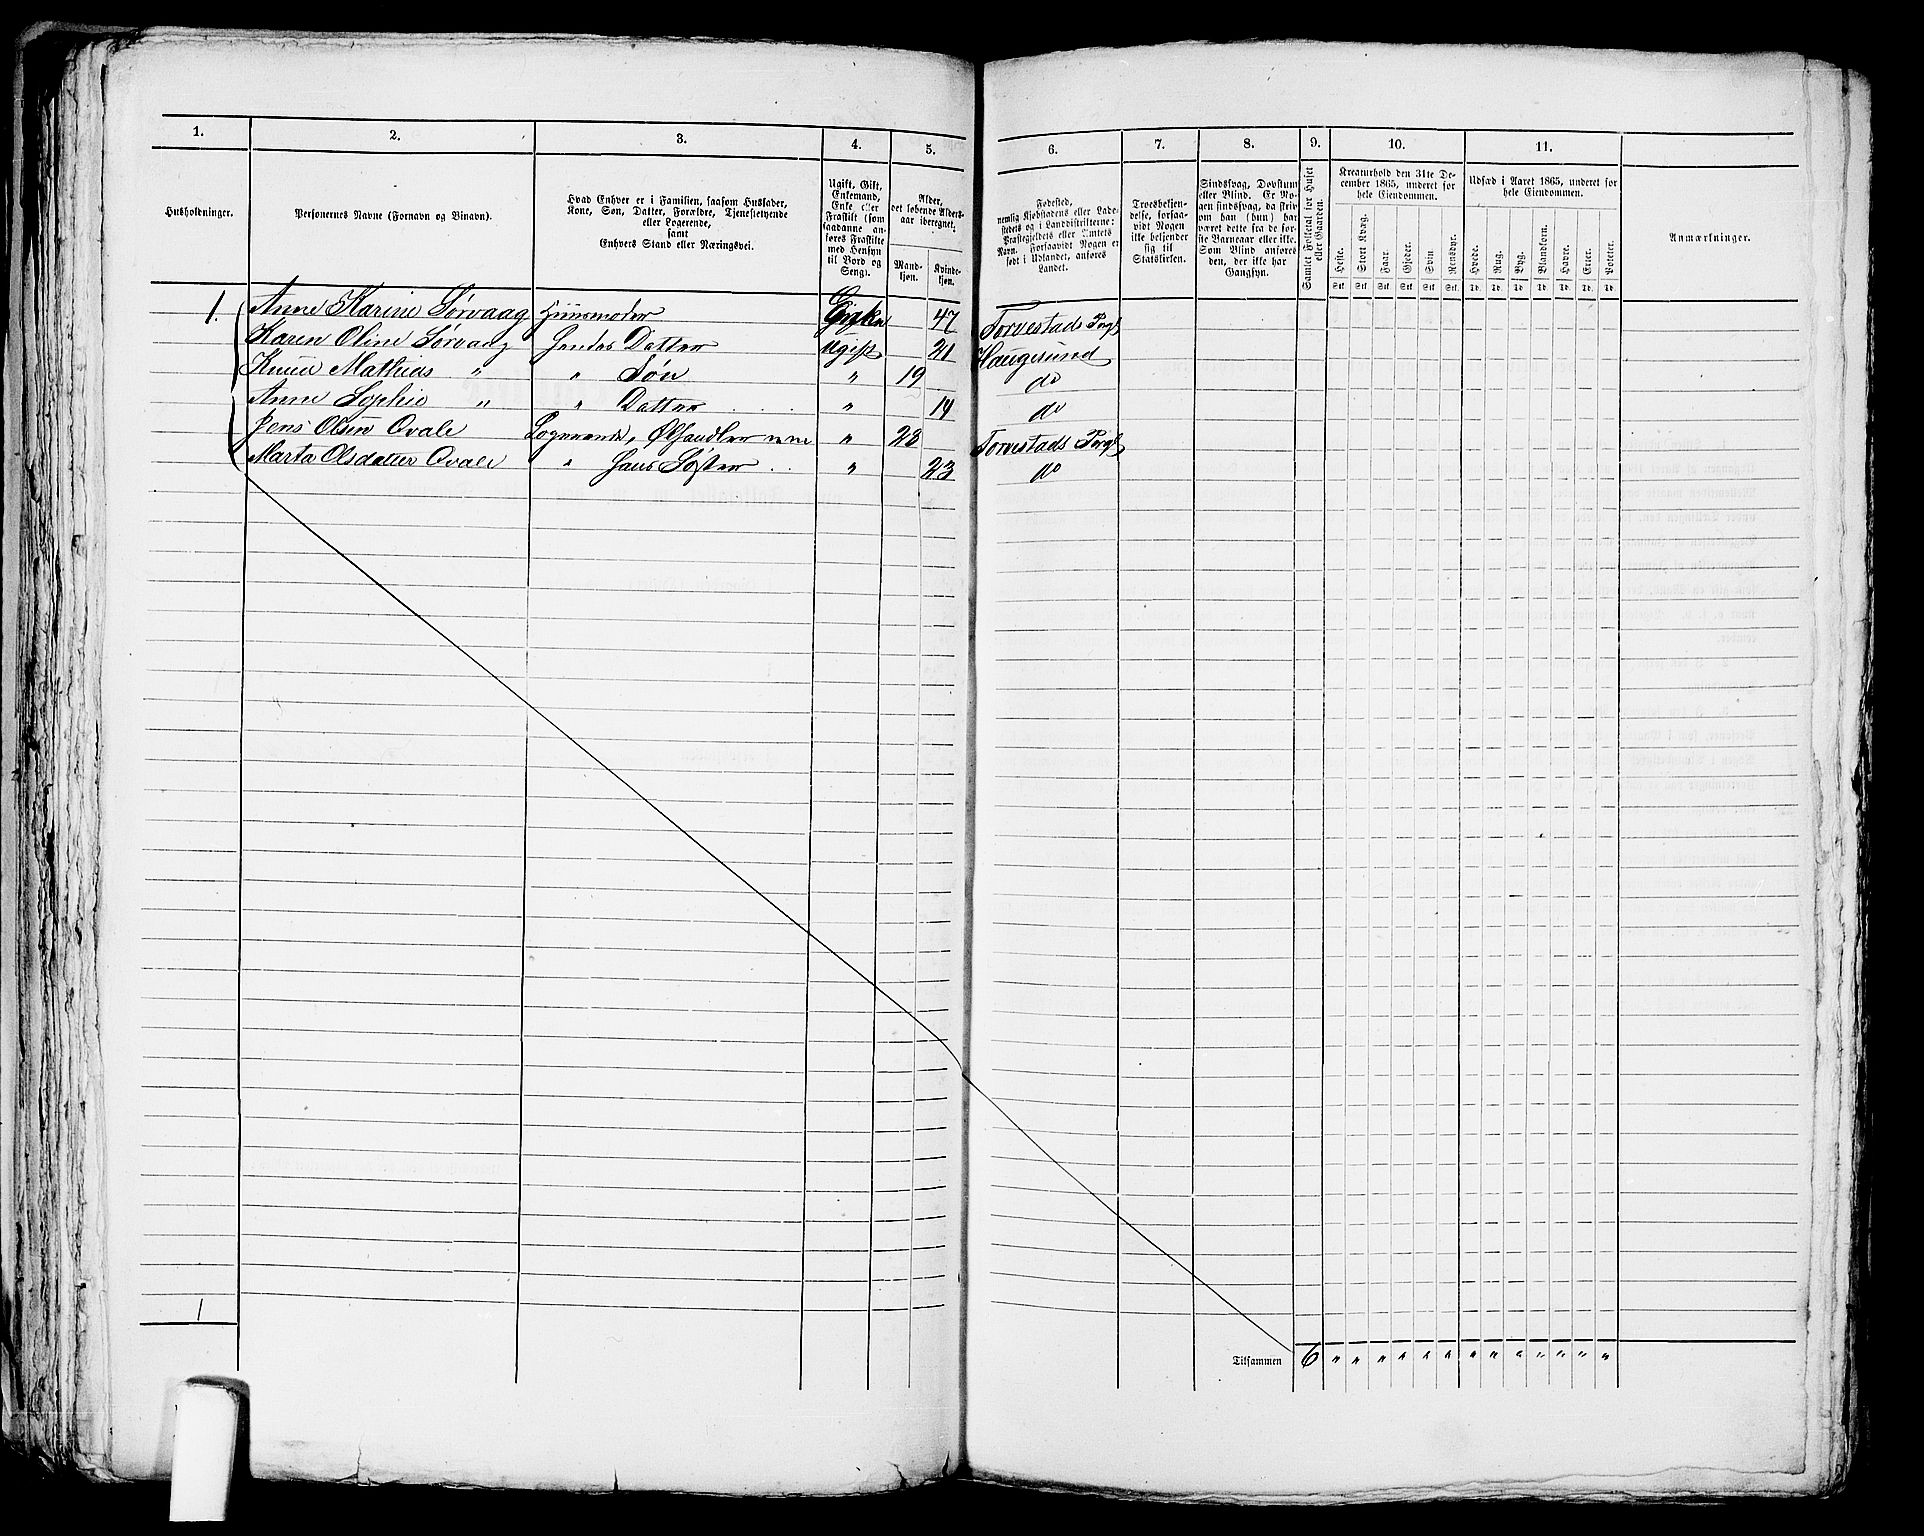 1. 2. 3. 4. 5. 6. 7. 8. 9. 10. 11.
Husholdninger.
Personernes Navne (Fornavn og Binavn).
Hvad Enhver er i Familien, saasom Husfader,
Kone, Søn, Datter, Forældre, Tjenestetyende
eller Logerende,
samt
Enhvers Stand eller Næringsvei.
Ugift, Gift,
Enkemand,
Enke eller
Fraskilt (som
saadanne an-
føres Fraskilte
med Hensyn
til Bord og
Seng).
Alder,
det løbende Alders-
aar iberegnet.
Mand-
kjøn.
Kvinde-
kjøn.
Fødested,
nemlig Kjøbstadens eller Lade-
stedets og i Landdistrikterne:
Præstegjeldets eller Amtets
Navn. Forsaavidt Nogen er
født i Udlandet, anføres
Landet.
Troesbekjen-
delse, forsaa-
vidt Nogen
ikke bekjender
sig
til
Statskirken.
Sindssvag, Døvstum
eller Blind. Er No-
gen sindssvag, da skriv
om han (hun) har
været dette fra de før-
ste Barneaar eller ikke.
Som Blind anføres
den, der ikke har
Gangsyn.
Samlet Folketal for Huset
eller Gaarden.
Kreaturhold den 31te De-
cember 1865, underet for
hele Eiendommen.
Heste. Stort Kvæg. Faar. Gjeder. Svin Rensdyr.
Stk. Stk. Stk. Stk. Stk. Stk.
Udsæd i Aaret 1865, underet for
hele Eiendommen.
Hvede. Rug. Byg. Blandkorn. Havre. Erter. Poteter.
Td. Td. Td. Td. Td. Td. Td.
Anmærkninger.
1. Anne Karine Sørvaag Huusmoder Enke 47 Torvestads Prgl
Karen Oline Sørvaag Hendes Datter Ugift 21 Haugesund
Knud Mathias " " Søn " 19 do
Anne Sophie " " Datter " 14 do
Jens Olsen Ovale Logerende, Ølhandler " 28 Torvestads Prgl
Marta Olsdatter Ovale " Hans Søster " 23 do
1
Tilsammen 6 " " " " " " " " " " " " "